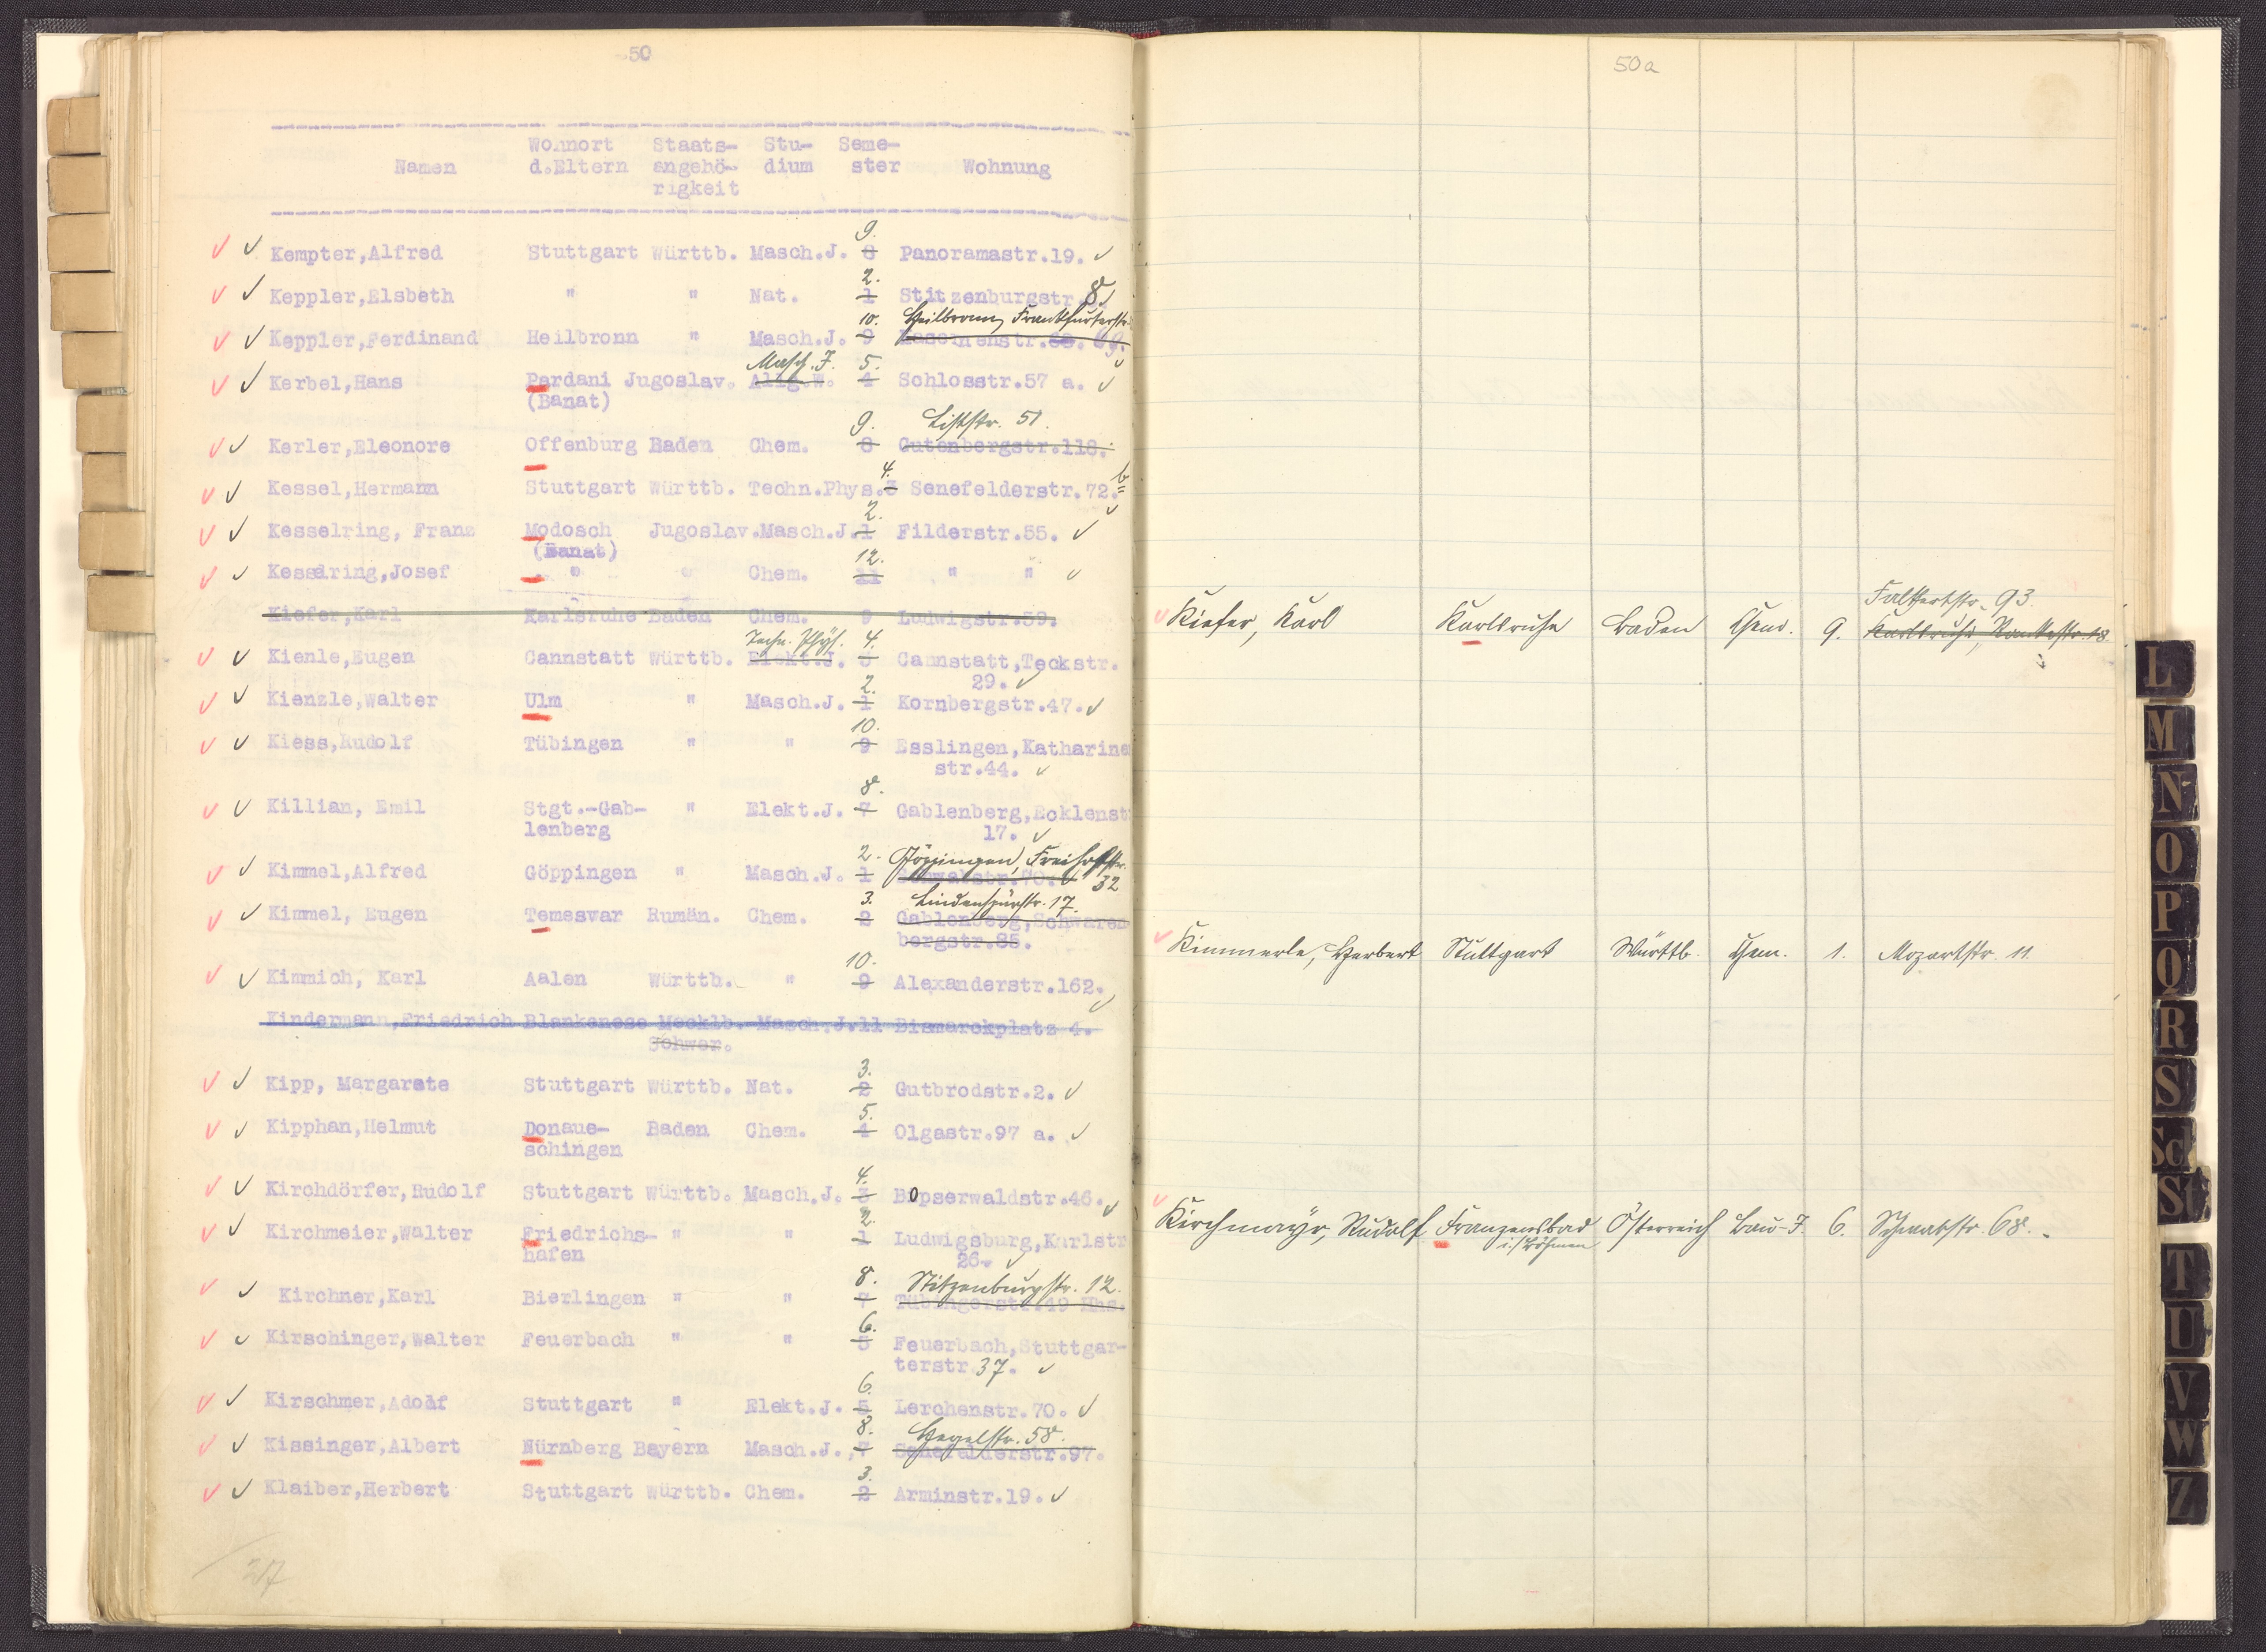 50
Wohnort Staats- Stu- Seme-
Namen d.Eltern angehö- dium ster Wohnung
rigkeit
9.
Kempter,Alfred Stuttgart Württb. Masch.J. 8 Panoramastr.19.
2.
Keppler,Elsbeth " " Nat. 1 Stitzenburgstr.8.
10. Heilbronn, Frankfurterstr.
Keppler,Ferdinand Heilbronn " Masch.J. 9 69.
Masch. J. 5.
Kerbel,Hans Pardani Jugoslav. Allg.W. 4 Schlosstr.57 a.
(Banat)
9. Liststr. 51.
Kerler,Eleonore Offenburg Baden Chem. 8 Gutenbergstr.118.
4. b
Kessel,Hermann Stuttgart Württb. Techn.Phys.3 Senefelderstr.72.
2.
Kesselring, Franz Modosch Jugoslav.Masch.J.1 Filderstr.55.
(Banat)
12.
Kesselring,Josef " " Chem. 11 " "
Kiefer,Karl Karlsruhe Baden Chem. 9 Ludwigstr.59.
Techn. Phys. 4.
Kienle,Eugen Cannstatt Württb. Elekt.J. 3 Cannstatt,Teckstr.
29.
2.
Kienzle,Walter Ulm " Masch.J. 1 Kornbergstr.47.
10.
Kiess,Rudolf Tübingen " " 9 Esslingen,Katharinen
str.44.
8.
Killian, Emil Stgt.-Gab- " Elekt.J. 7 Gablenberg,Ecklenstr
lenberg 17.
2. Göppingen, Freihofstr.
Kimmel,Alfred Göppingen " Masch.J. 1 Schwabstr.70. 32
3. Lindenspürstr. 17.
Kimmel, Eugen Temesvar Rumän. Chem. 2 Gablenberg,Schwaren
bergstr.85.
10.
Kimmich, Karl Aalen Württb. " 9 Alexanderstr.162.
Kindermann,Friedrich Blankenese Mecklb. Masch.J.11 Bismarckplatz 4.
Schwer.
3.
Kipp, Margarete Stuttgart Württb. Nat. 2 Gutbrodstr.2.
5.
Kipphan,Helmut Donaue- Baden Chem. 4 Olgastr.97 a.
schingen
4.
Kirchdörfer,Rudolf Stuttgart Württb. Masch.J. 3 Bopserwaldstr.46.
2.
Kirchmeier,Walter Friedrichs- " " 1 Ludwigsburg,Karlstr
hafen 26.
8. Stitzenburgstr. 12.
Kirchner,Karl Bierlingen " " 7 Tübingerstr.49 Hhs.
6.
Kirschinger,Walter Feuerbach " " 5 Feuerbach,Stuttgar-
terstr.37.
6.
Kirschmer,Adolf Stuttgart " Elekt.J. 5 Lerchenstr.70.
8. Hegelstr. 58.
Kissinger,Albert Nürnberg Bayern Masch.J. 7 Senefelderstr.97.
3.
Klaiber,Herbert Stuttgart Württb. Chem. 2 Arminstr.19.
50a
Falkertstr. 93.
Kiefer, Karl Karlsruhe Baden Chem. 9. Karlsruhe,
Kimmerle, Herbert Stuttgart Württb. Chem. 1. Mozartstr. 11
Kirchmayr, Rudolf Franzensbad Österreich Bau-J. 6. Schwabstr. 68.
i./Böhmen
L
M
N
O
P
Q
R
S
Sch
St
T
U
V
W
Z